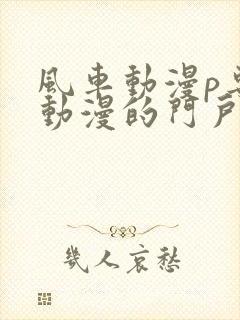 風車動漫p
動漫的門戶
幾人哀愁